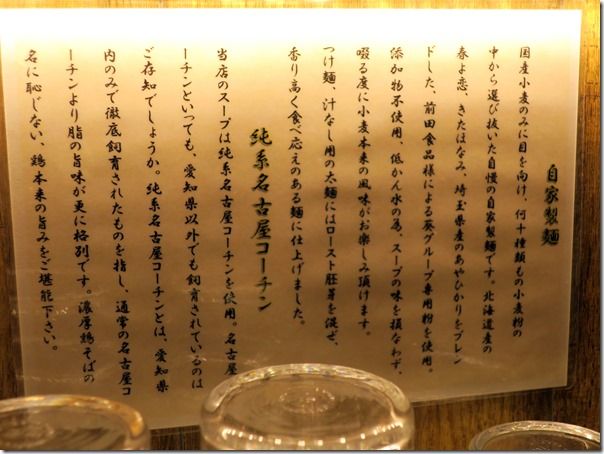 自家製麺
国産小麦のみに目を向け、何十種類もの小麦粉の
中から選び抜いた自慢の自家製麺です。北海道産の
春よ恋、きたほなみ、埼玉県産のあやひかりをブレン
ドした、前田食品様による葵グループ専用粉を使用。
添加物不使用、低かん水の為、スープの味を損なわず、
啜る度に小麦本来の風味がお楽しみ頂けます。
つけ麺、汁なし用の太麺にはロースト胚芽を混ぜ、
香り高く食べ応えのある麺に仕上げました。
純系名古屋コーチン
当店のスープは純系名古屋コーチンを使用。名古屋コ
ーチンといっても、愛知県以外でも飼育されているのは
ご存知でしょうか。純系名古屋コーチンとは、愛知県
内のみで徹底飼育されたものを指し、通常の名古屋コ
ーチンより脂の旨味が更に格別です。濃厚鶏そばの
名に恥じない、鶏本来の旨みをご堪能下さい。